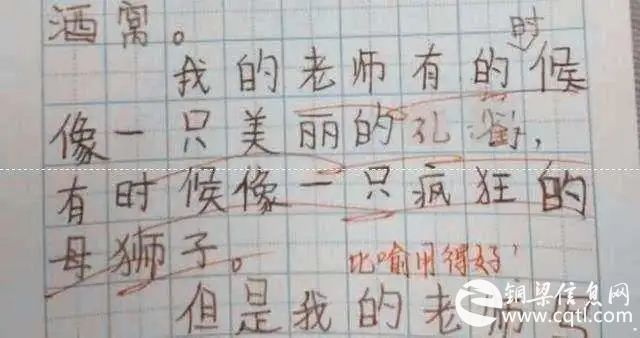 酒窝。
我的老师有的时候
像一只美丽的孔,
有时候像一只疯狂的
母狮子。 比喻用得好
但是我的老师
铜梁信息网
www.cqtl.com